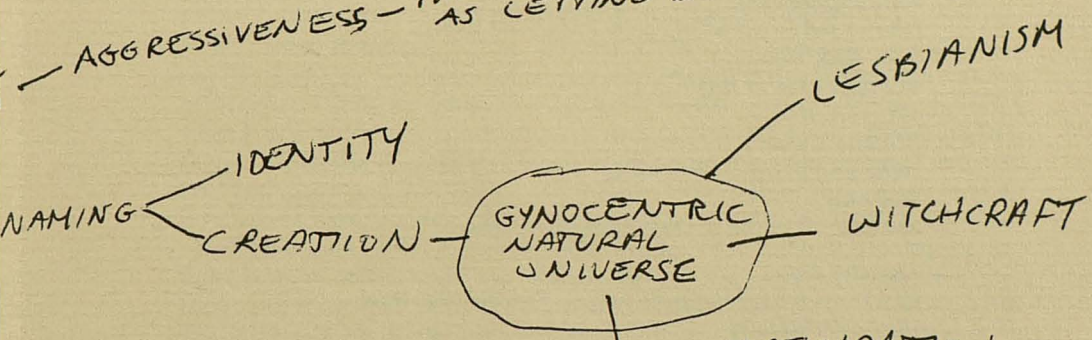 AGGRESSIVENESS —
AS
LESBIANISM
IDENTITY
NAMING
CREATION
GYNOCENTRIC
NATURAL
UNIVERSE
WITCHCRAFT